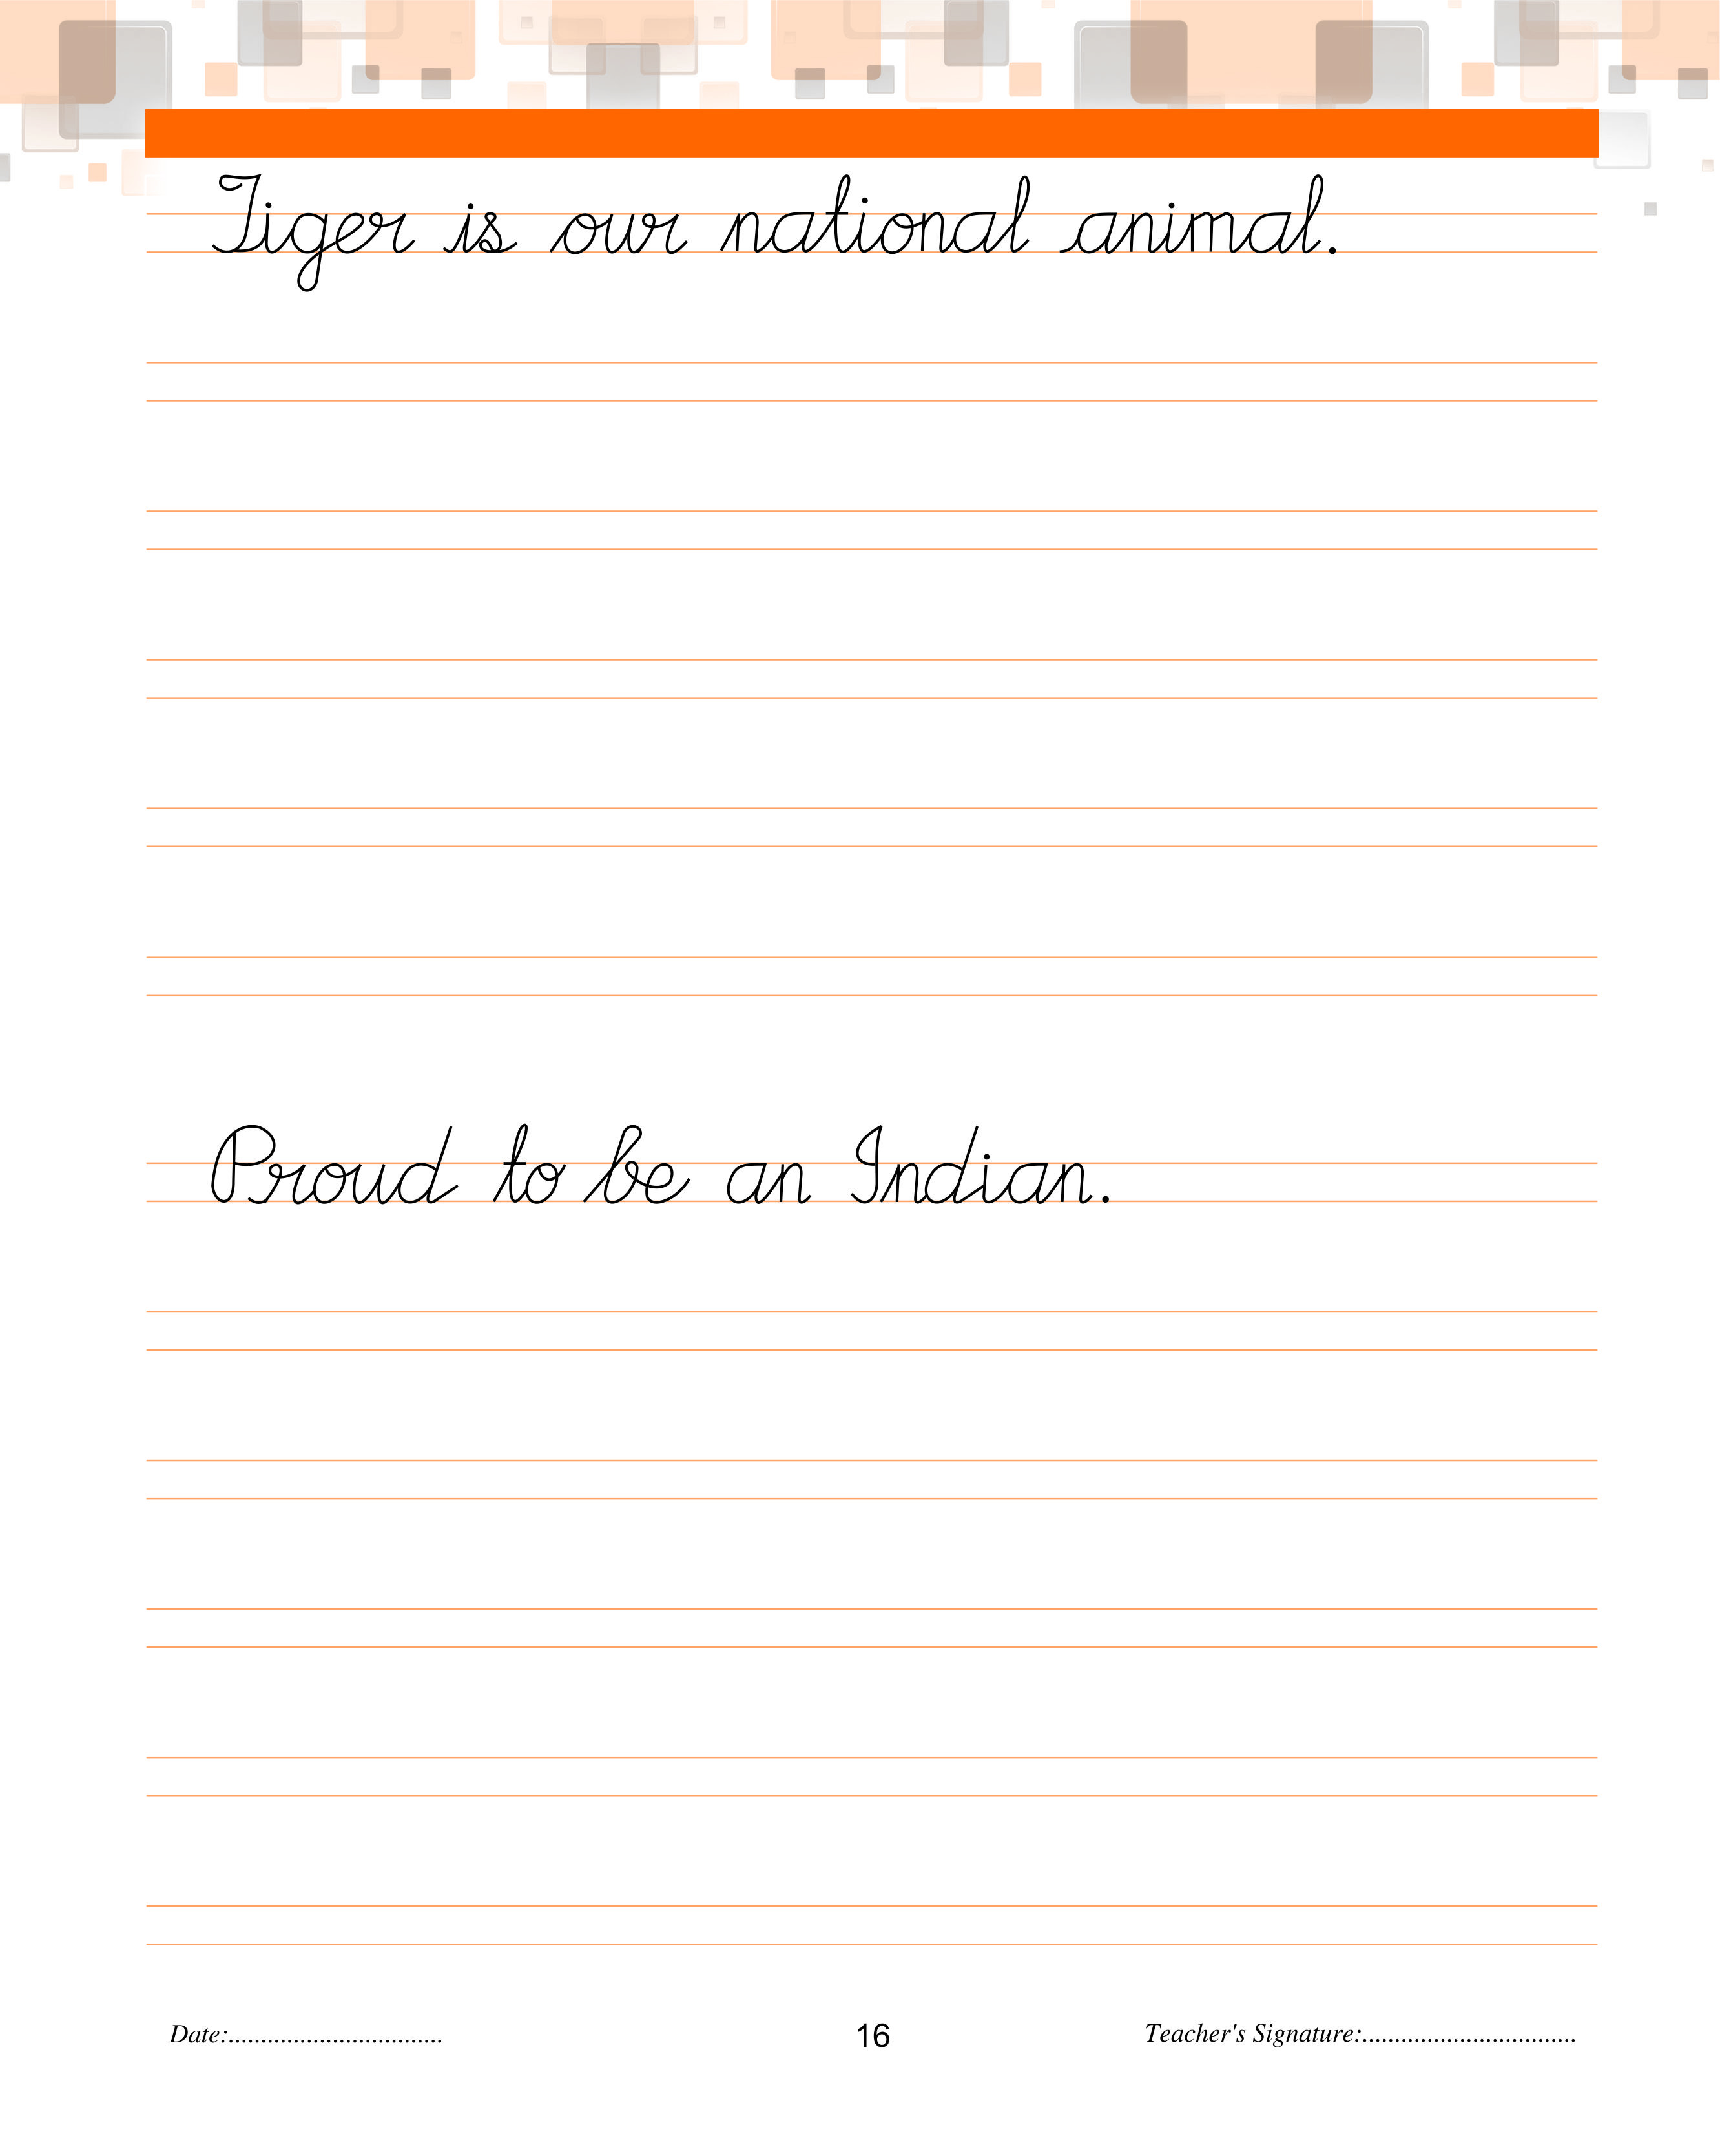 Tiger is our national animal.
Proud to be an Indian.
Date:................................. 16 Teacher's Signature:.................................